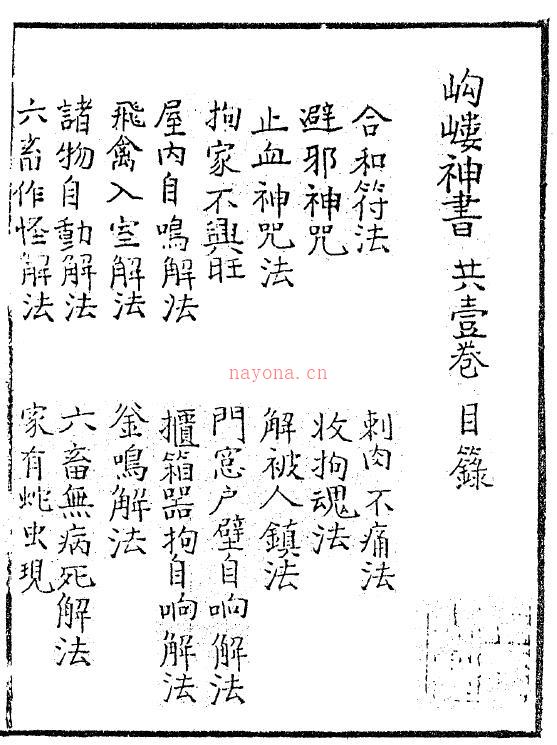 岣嶁神書 共壹卷 目籙
合和符法
刺肉不痛法
避邪神咒
收拘魂法
止血神咒法
解被人鎮法
拘家不興旺
門窓户壁自响解法
屋内自鳴解法
櫃箱器拘自响解法
飛禽入室解法
釜鳴解法
諸物自動解法
六畜無病死解法
六畜作怪解法
家有蛇虫現
nayona.cn